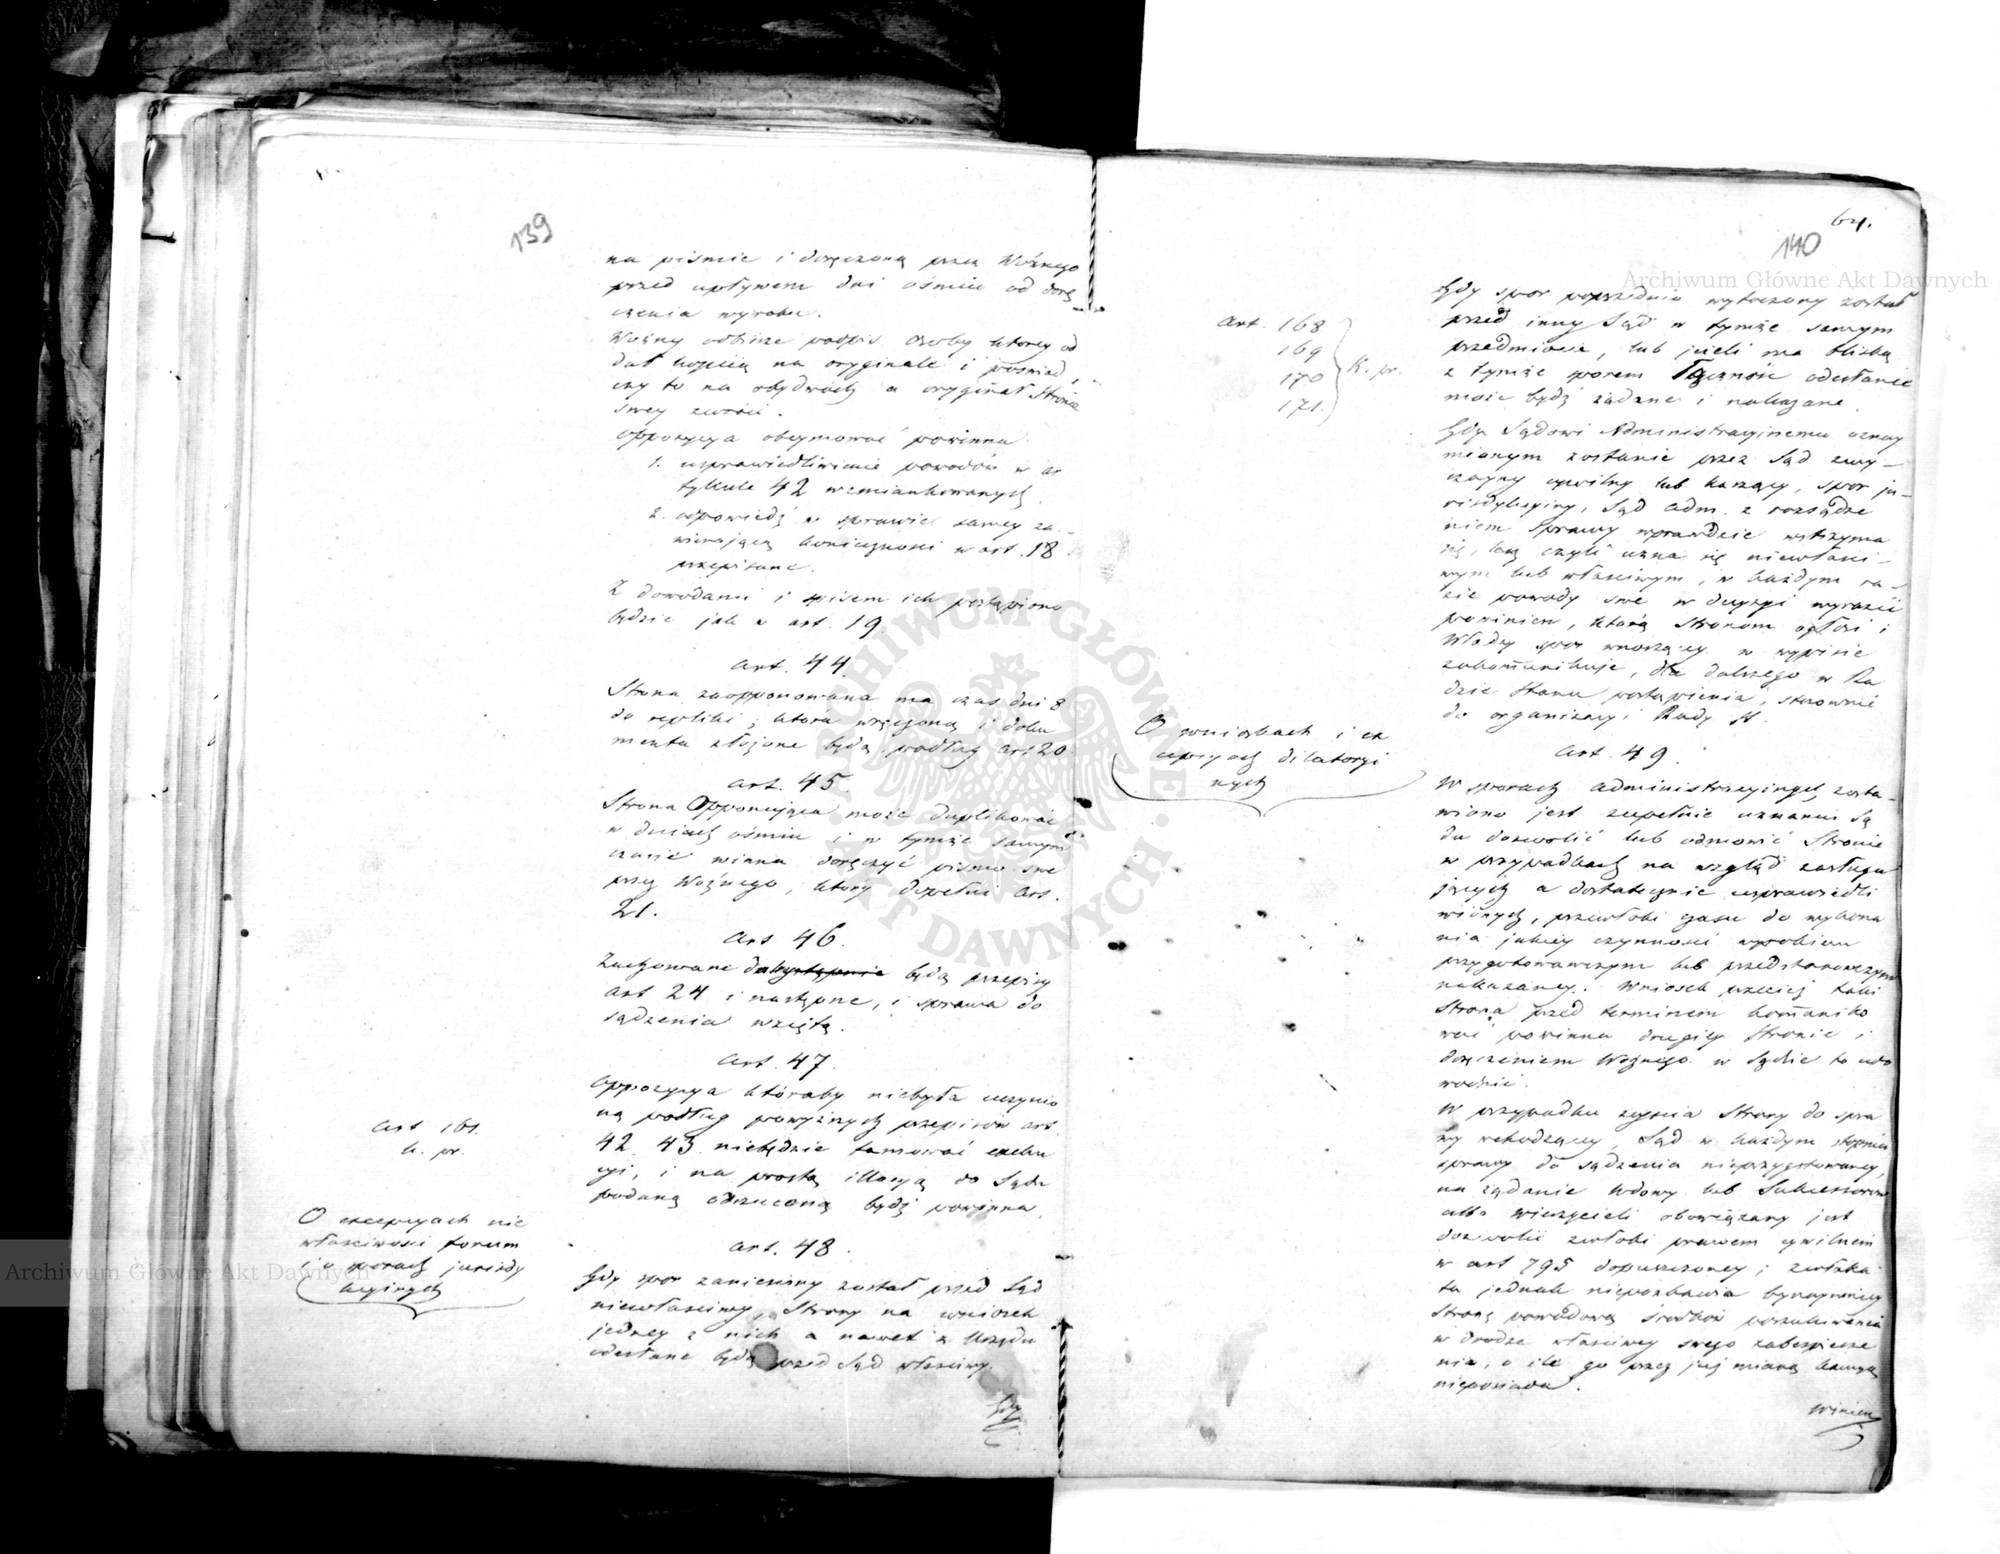 139
na piśmie i doręczoną przez Woźnego
przed upływem dni ośmiu od dorę
czenia wyroku.
Woźny odbierze podpis osoby ktorey od
dał kopiią na oryginale i poświad
czy to na obydwóch a oryginał Stronie
swey zwróci.
Oppozycya obeymować powinna
1. usprawiedliwienie powodów w ar
tykule 42 wzmiankowanych.
2. odpowiedź w sprawie samey za
wierającą konieczności w art. 18
przepisane.
Z dowodami i spisem ich postąpiono
będzie jak w art. 19
Art. 44.
Strona zaopponowana ma czas dni 8
do repliki, która wręczoną i doku
menta złożone będą podług art 20
Art. 45.
Strona Opponująca może duplikować
w dniach ośmiu i w tymże samym
czasie winna doręczyć pismo swe
przez Woźnego, który dopełni art.
21.
Art 46.
Zachowane będą przepisy
art 24 i następne, i sprawa do
sądzenia wziętą.
Art. 47.
Oppozycya któraby niebyła uczynio
ną podług powyższych przepisów art.
42. 43. niebędzie tamować exeku
cyi, i na prostą illacyą do Sądu
podaną odrzuconą bydź powinna.
Art 161.
k. pr.
O excepcyach nie
właściwości forum
i o sporach jurizdy
kcyinych
Art. 48.
Gdy spor zaniesiony został przed Sąd
niewłaściwy, Strony na wniosek
jedney z nich a nawet z Urzędu
odesłane będą przed Sąd właściwy.
Gdy
64.
140
Art. 168
169
170
171.
K. pr.
Gdy spor poprzednio wytoczony został
przed inny Sąd w tymże samym
przedmiocie, lub jeżeli ma bliską
z tymże sporem łączność odesłanie
może bydź żądane i nakazane.
Gdy Sądowi Administracyinemu oznay
mionym zostanie przez Sąd zwy-
czayny cywilny lub karzący, spor ju-
risdykcyiny, Sąd adm. z rozsądze
niem sprawy wprawdzie wstrzyma
się, lecz czyli uzna się niewłaści-
wym lub właściwym, w każdym ra-
zie powody swe w decyzyi wyrazić
powinien, którą Stronom ogłosi i
Władzy spor wnoszącey w wypisie
zakommunikuje, dla dalszego w Ra
dzie Stanu postąpienia, stosownie
do organizacyi Rady St.
O wnioskach i ex
cepcyach dilatoryi
nych
Art. 49.
W sporach administracyinych zosta-
wiono jest zupełnie uznaniu Są
du dozwolić lub odmówić Stronie
w przypadkach na wzgląd zasługu
jących a dostatecznie usprawiedli
wionych, przewłoki czasu do wykona
nia jakiey czynności wyrokiem
przygotowawczym lub przedstanowczym
nakazaney. Wniosek przeciéż taki
Strona przed terminem kommuniko
wać powinna drugiey Stronie i
doręczeniem Woźnego w Sądzie to udo
wodnić.
W przypadku zeyścia Strony do spra
wy wchodzącey, Sąd w każdym stopniu
sprawy do sądzenia nieprzygotowaney,
na żądanie Wdowy lub Sukcessorów
albo wierzycieli obowiązany jest
dozwolić zwłoki prawem cywilnem
w art 795 dopuszczoney; zwłoka
ta jednak niepozbawia bynaymniey
Stronę powodową środków poszukiwania
w drodze właściwey swego zabezpiecze
nia, o ile go przez jej mianą kaucyą
nieposiada.
Winien
Archiwum Główne Akt Dawnych
Archiwum Główne Akt Dawnych
ARCHIWUM GŁÓWNE AKT DAWNYCH